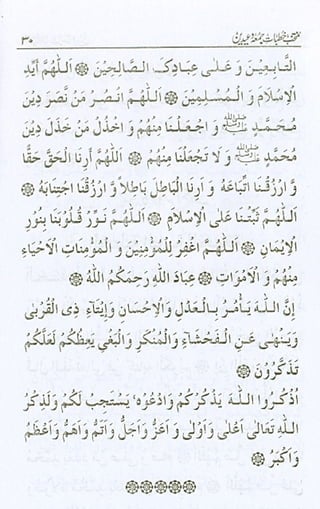 منتخب خطبات جمعہ و عیدین ۳۰
التَّابِعِيْنَ وَ عَلٰى عِبَادِكَ الصَّالِحِيْنَ ۞ اَللّٰهُمَّ اَيِّدِ
الْاِسْلَامَ وَ الْمُسْلِمِيْنَ ۞ اَللّٰهُمَّ انْصُرْ مَنْ نَّصَرَ دِيْنَ
مُحَمَّدٍ ﷺ وَ اجْعَلْنَا مِنْهُمْ وَ اخْذُلْ مَنْ خَذَلَ دِيْنَ
مُحَمَّدٍ ﷺ وَ لَا تَجْعَلْنَا مِنْهُمْ ۞ اَللّٰهُمَّ اَرِنَا الْحَقَّ حَقًّا
وَّ ارْزُقْنَا اتِّبَاعَهُ وَ اَرِنَا الْبَاطِلَ بَاطِلًا وَّ ارْزُقْنَا اجْتِنَابَهُ ۞
اَللّٰهُمَّ ثَبِّتْنَا عَلَى الْاِسْلَامِ ۞ اَللّٰهُمَّ نَوِّرْ قُلُوْبَنَا بِنُوْرِ
الْاِيْمَانِ ۞ اَللّٰهُمَّ اغْفِرْ لِلْمُؤْمِنِيْنَ وَ الْمُؤْمِنَاتِ الْاَحْيَاءِ
مِنْهُمْ وَ الْاَمْوَاتِ ۞ عِبَادَ اللّٰهِ رَحِمَكُمُ اللّٰهُ ۞
اِنَّ اللّٰهَ يَاْمُرُ بِالْعَدْلِ وَالْاِحْسَانِ وَاِيْتَاءِ ذِى الْقُرْبٰى
وَيَنْهٰى عَنِ الْفَحْشَاءِ وَالْمُنْكَرِ وَالْبَغْىِ يَعِظُكُمْ لَعَلَّكُمْ
تَذَكَّرُوْنَ ۞
اُذْكُرُوا اللّٰهَ يَذْكُرْكُمْ وَادْعُوْهُ يَسْتَجِبْ لَكُمْ وَلَذِكْرُ
اللّٰهِ تَعَالٰى اَعْلٰى وَ اَوْلٰى وَ اَعَزُّ وَ اَجَلُّ وَ اَتَمُّ وَ اَهَمُّ وَ اَعْظَمُ
وَ اَكْبَرُ ۞
۞۞۞۞۞